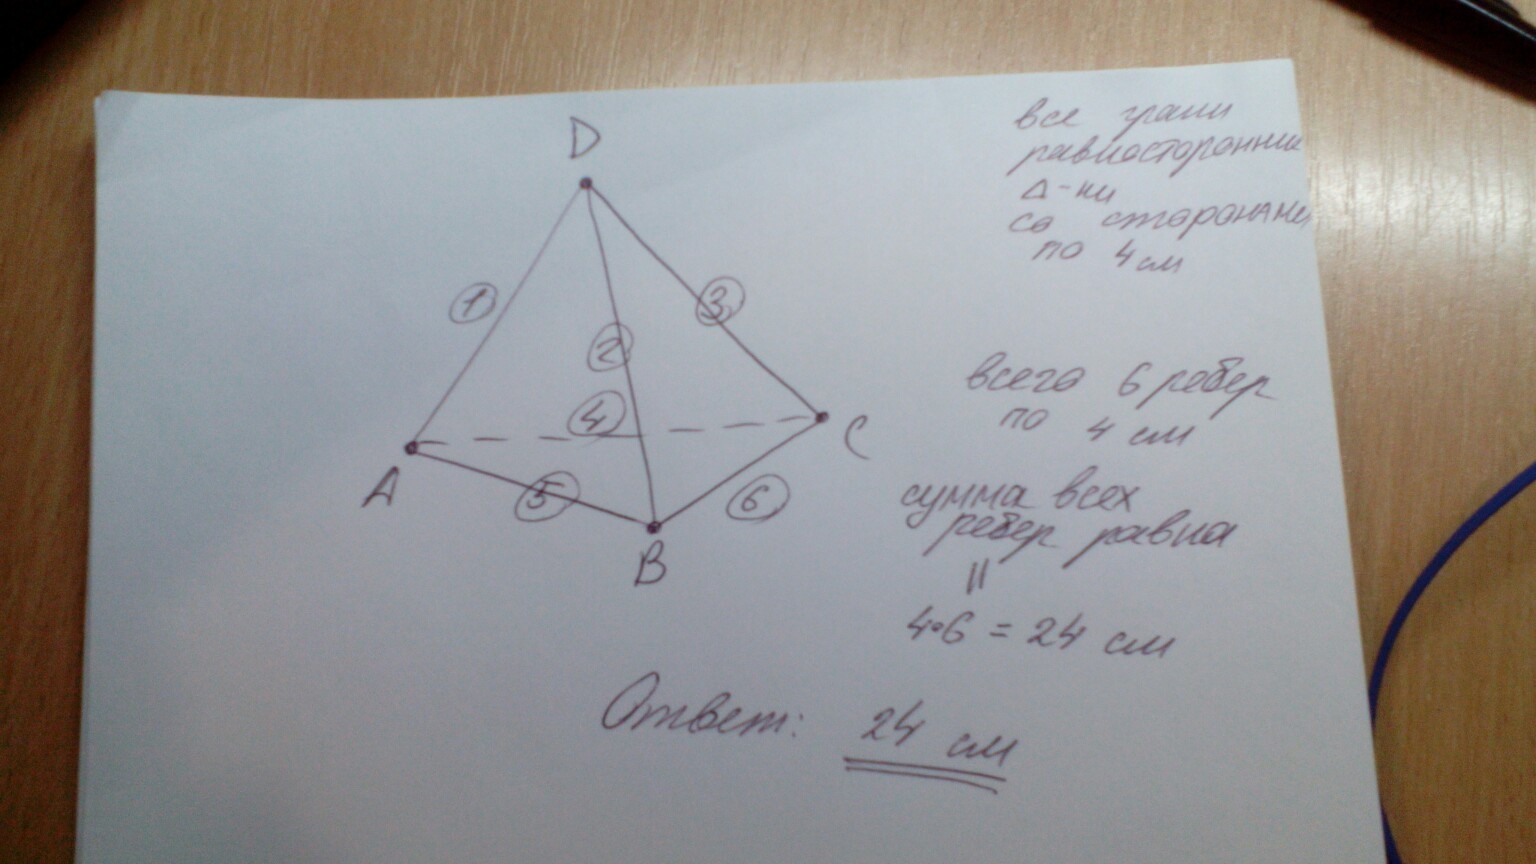 D
все грани
равносторонние
Δ-ки
со сторонами
по 4 см
1
3
2
4
всего 6 ребер
по 4 см
C
A
5
6
сумма всех
ребер равна
B
=
4•6 = 24 см
Ответ: 24 см